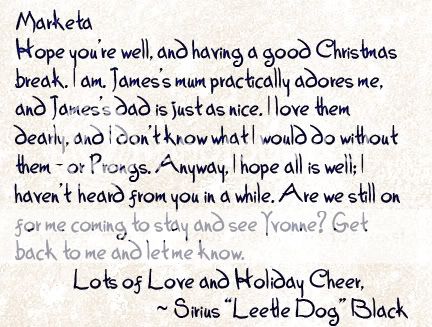 Marketa
Hope you're well, and having a good Christmas
break. I am. James's mum practically adores me,
and James's dad is just as nice. I love them
dearly, and I don't know what I would do without
them - or Prongs. Anyway, I hope all is well; I
haven't heard from you in a while. Are we still on
for me coming to stay and see Yvonne? Get
back to me and let me know.
Lots of Love and Holiday Cheer,
~ Sirius "Leetle Dog" Black